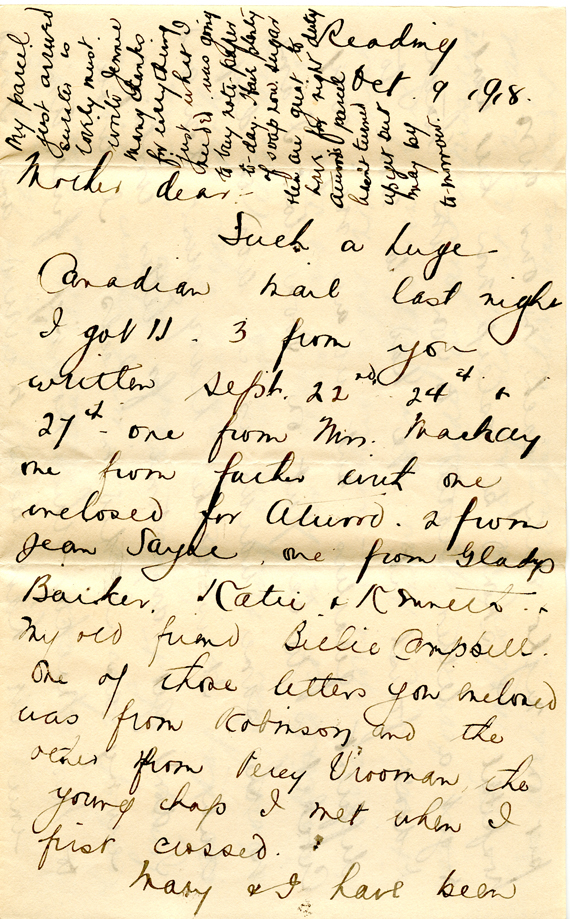 Reading
Oct. 9, 1918.
My parcel
just arrived
sweater is
lovely must
write Jennie
many thanks
for everything
just what I
needed was going
to buy note-paper
to-day. Have plenty
of soap now. sugar
are great to
have for night duty
Atwood's parcel
hasn't turned
up yet but
may by
to-morrow.
Mother dear-
Such a huge
Canadian mail last night
I got 11. 3 from you
written Sept. 22nd 24th &
27th - one from Mrs. Mackay
one from father with one
enclosed for Atwood. 2 from
Jean Sayre, one from Gladys
Barker, Katie & Kenneth &
my old friend Billie Campbell.
One of those letters you enclosed
was from Robinson and the
other from Percy Vrooman, the
young chap I met when I
first crossed.
Mary & I have been